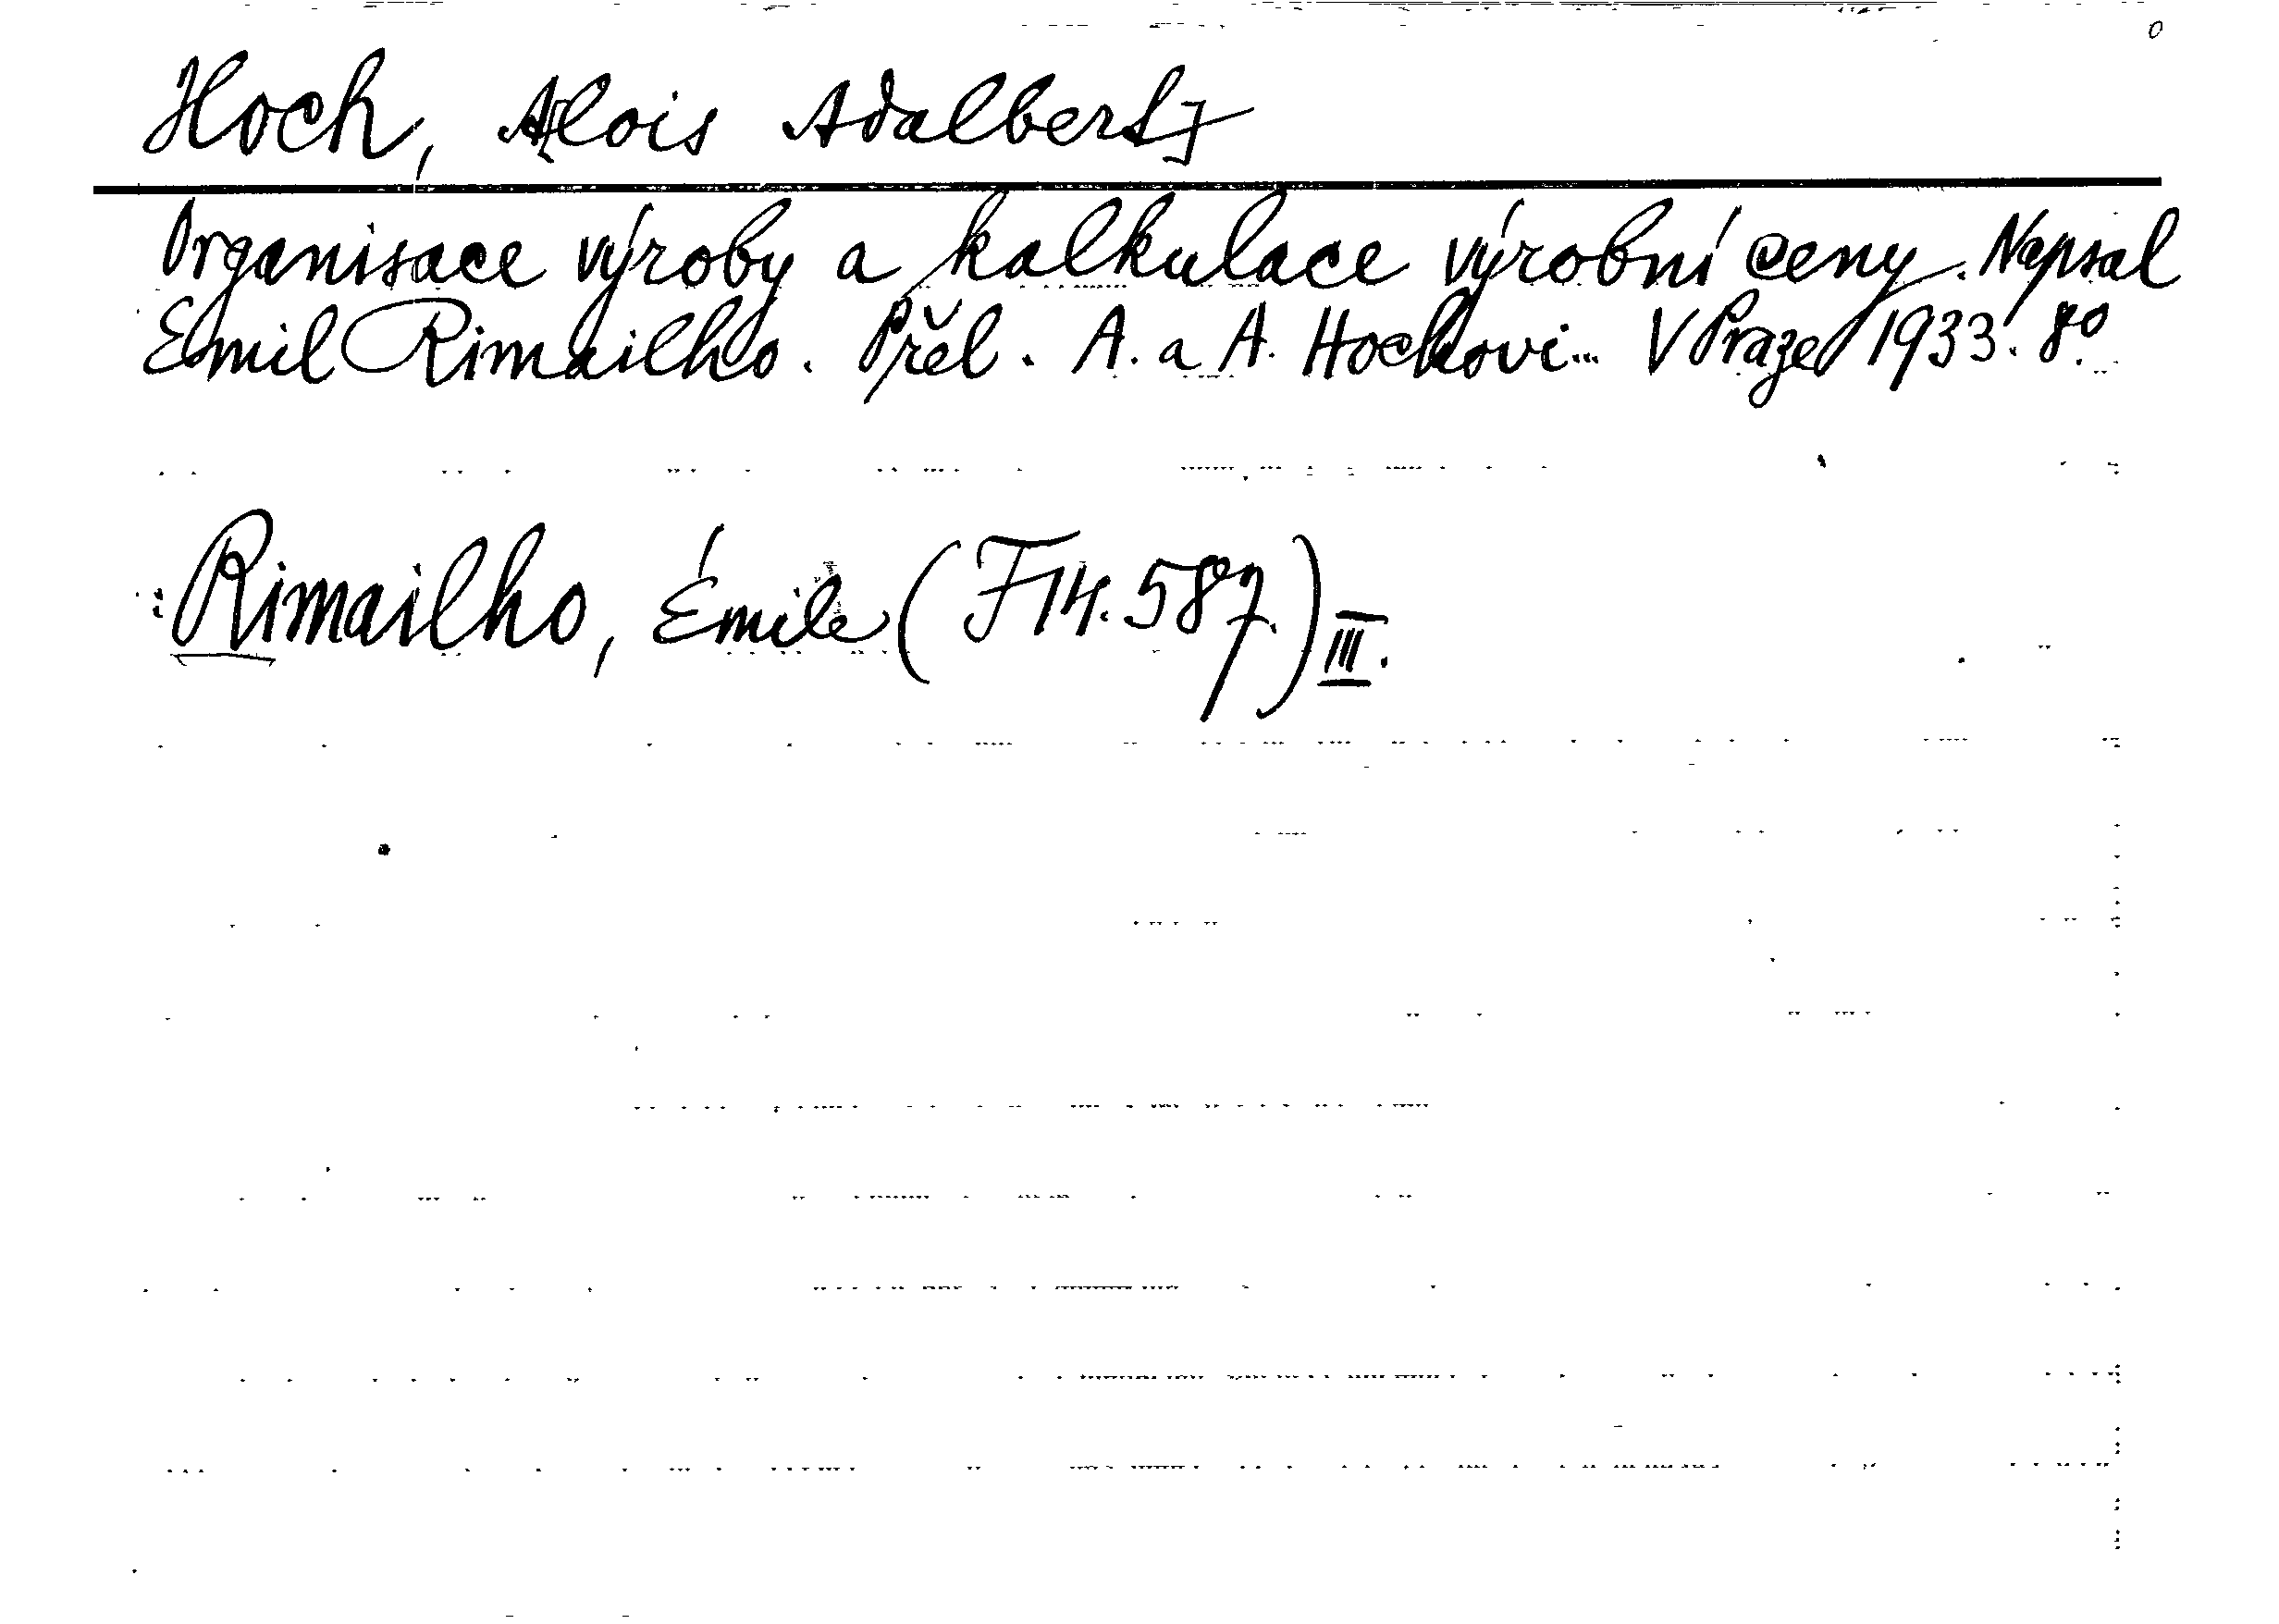 Hoch, A[lois Adalbert]
Organisace výroby a kalkulace výrobní ceny. Napsal
Emil Rimailho. Přel. A. a A. Hochovi... V Praze 1933. 8°.
Rimailho, Émile (F 14.587) III.